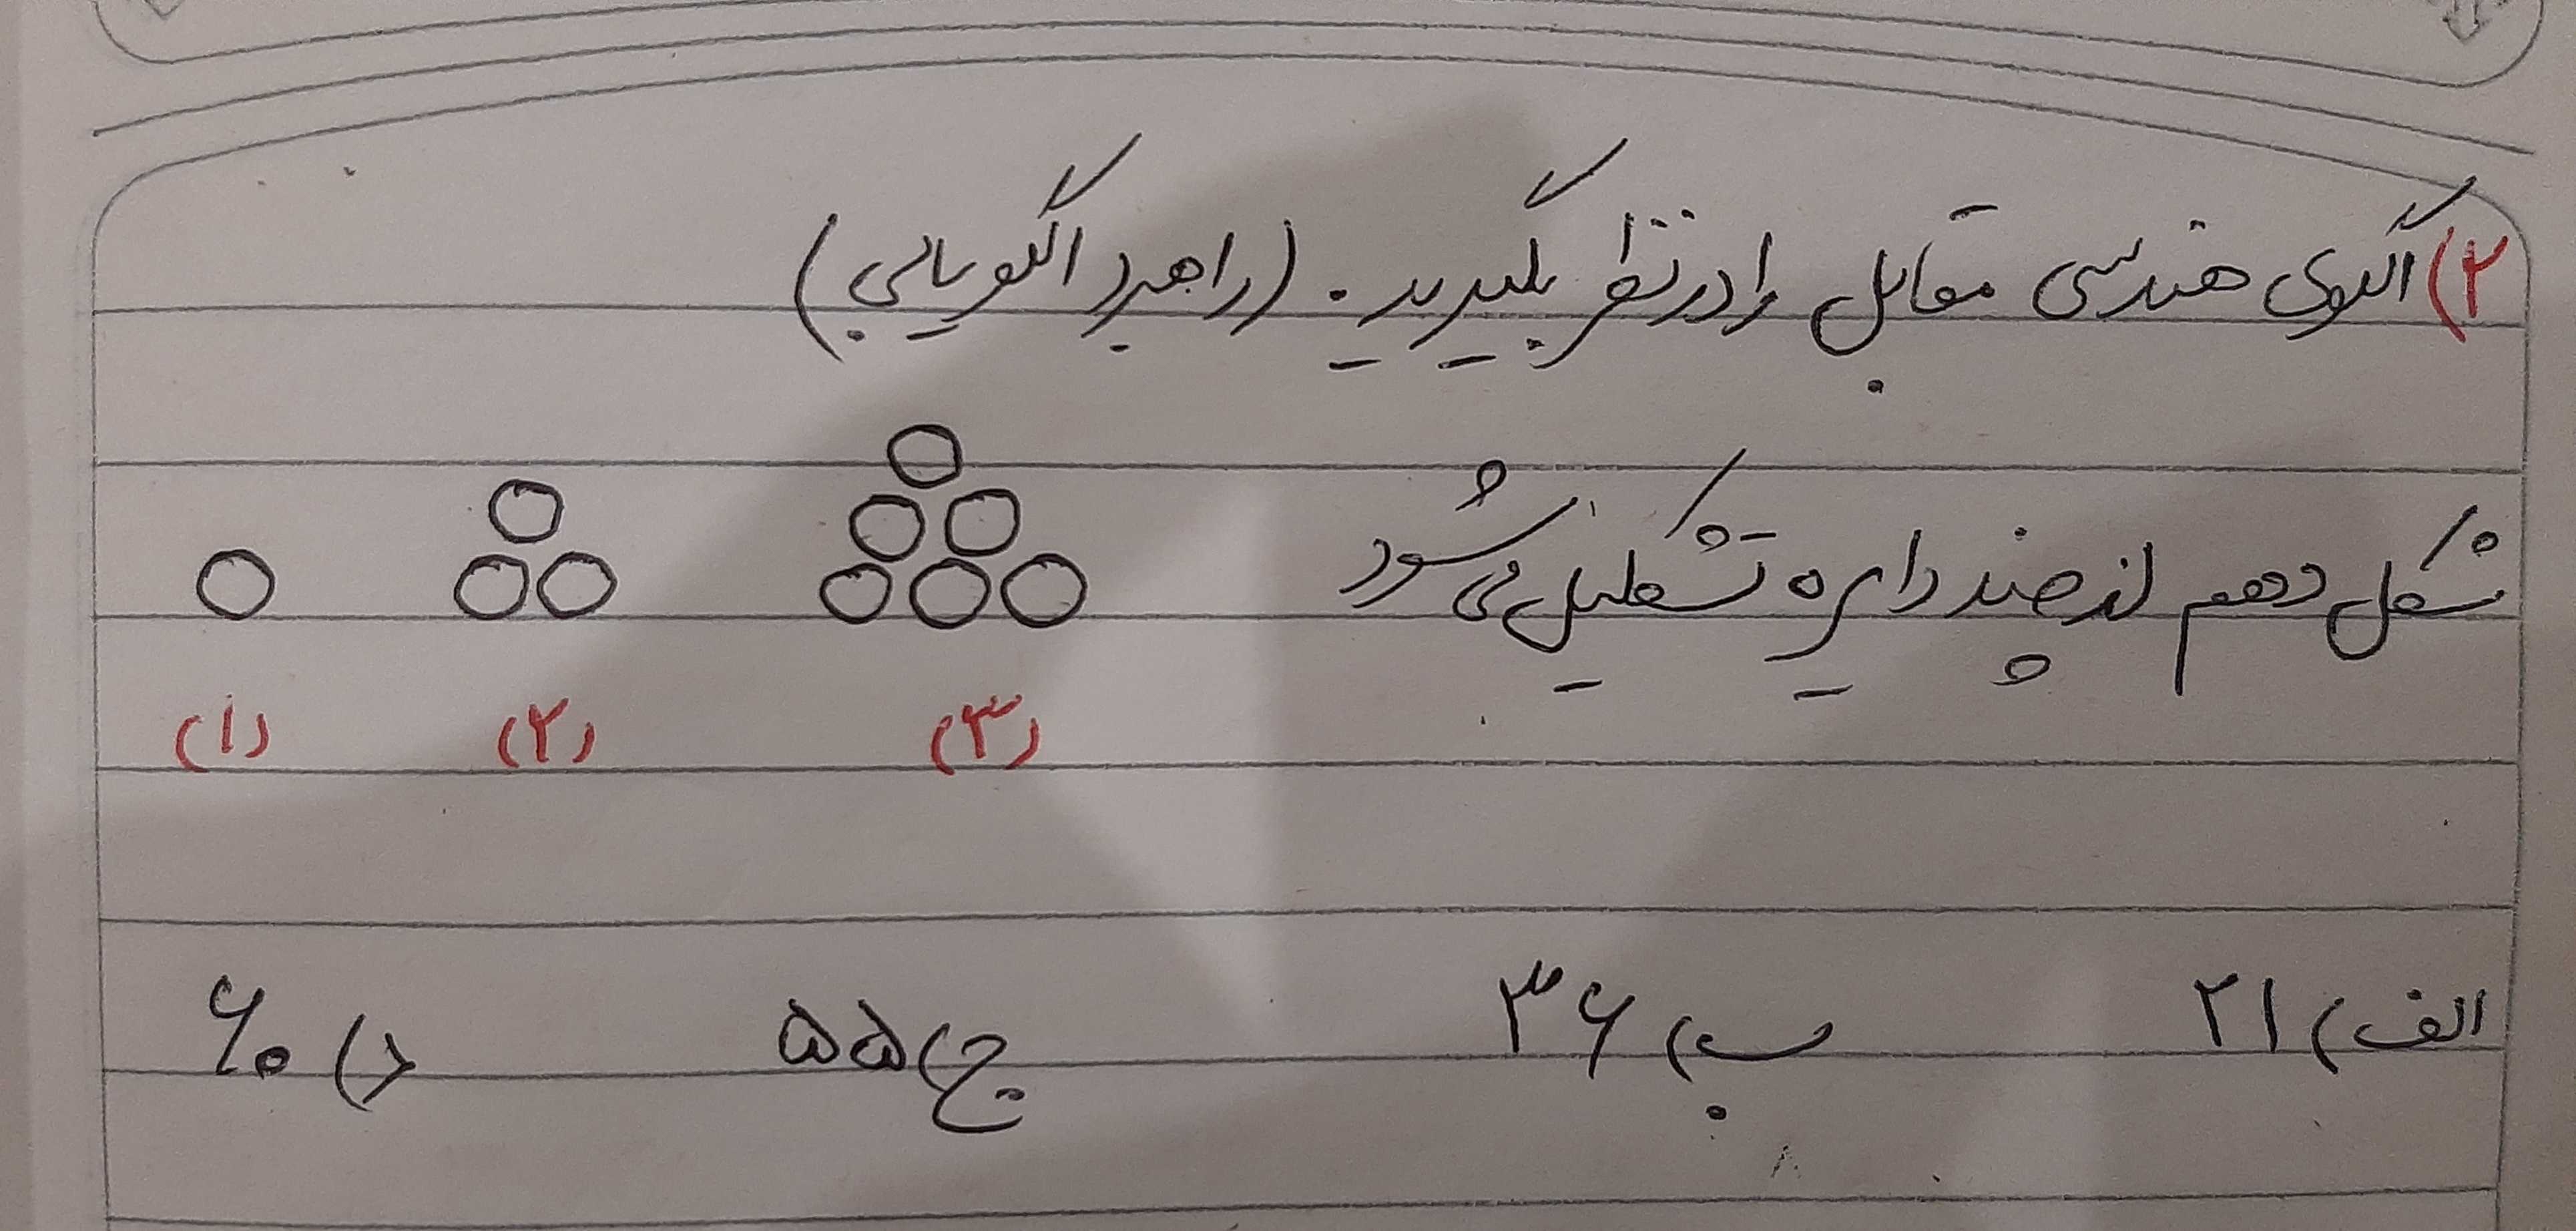 ۲) الگوی هندسی مقابل را در نظر بگیرید. (راهبرد الگویابی)
شکل دهم از چند دایره تشکیل می‌شود
(۱) (۲) (۳)
الف) ۲۱ ب) ۳۶ ج) ۵۵ د) ۶۰